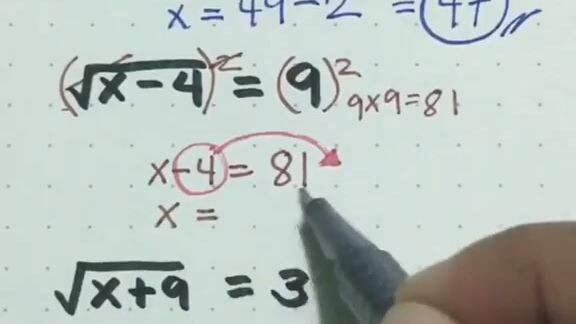 x = 49 - 2 = 47
(√x-4)² = (9)²
9×9=81
x-4 = 81
x =
√x+9 = 3